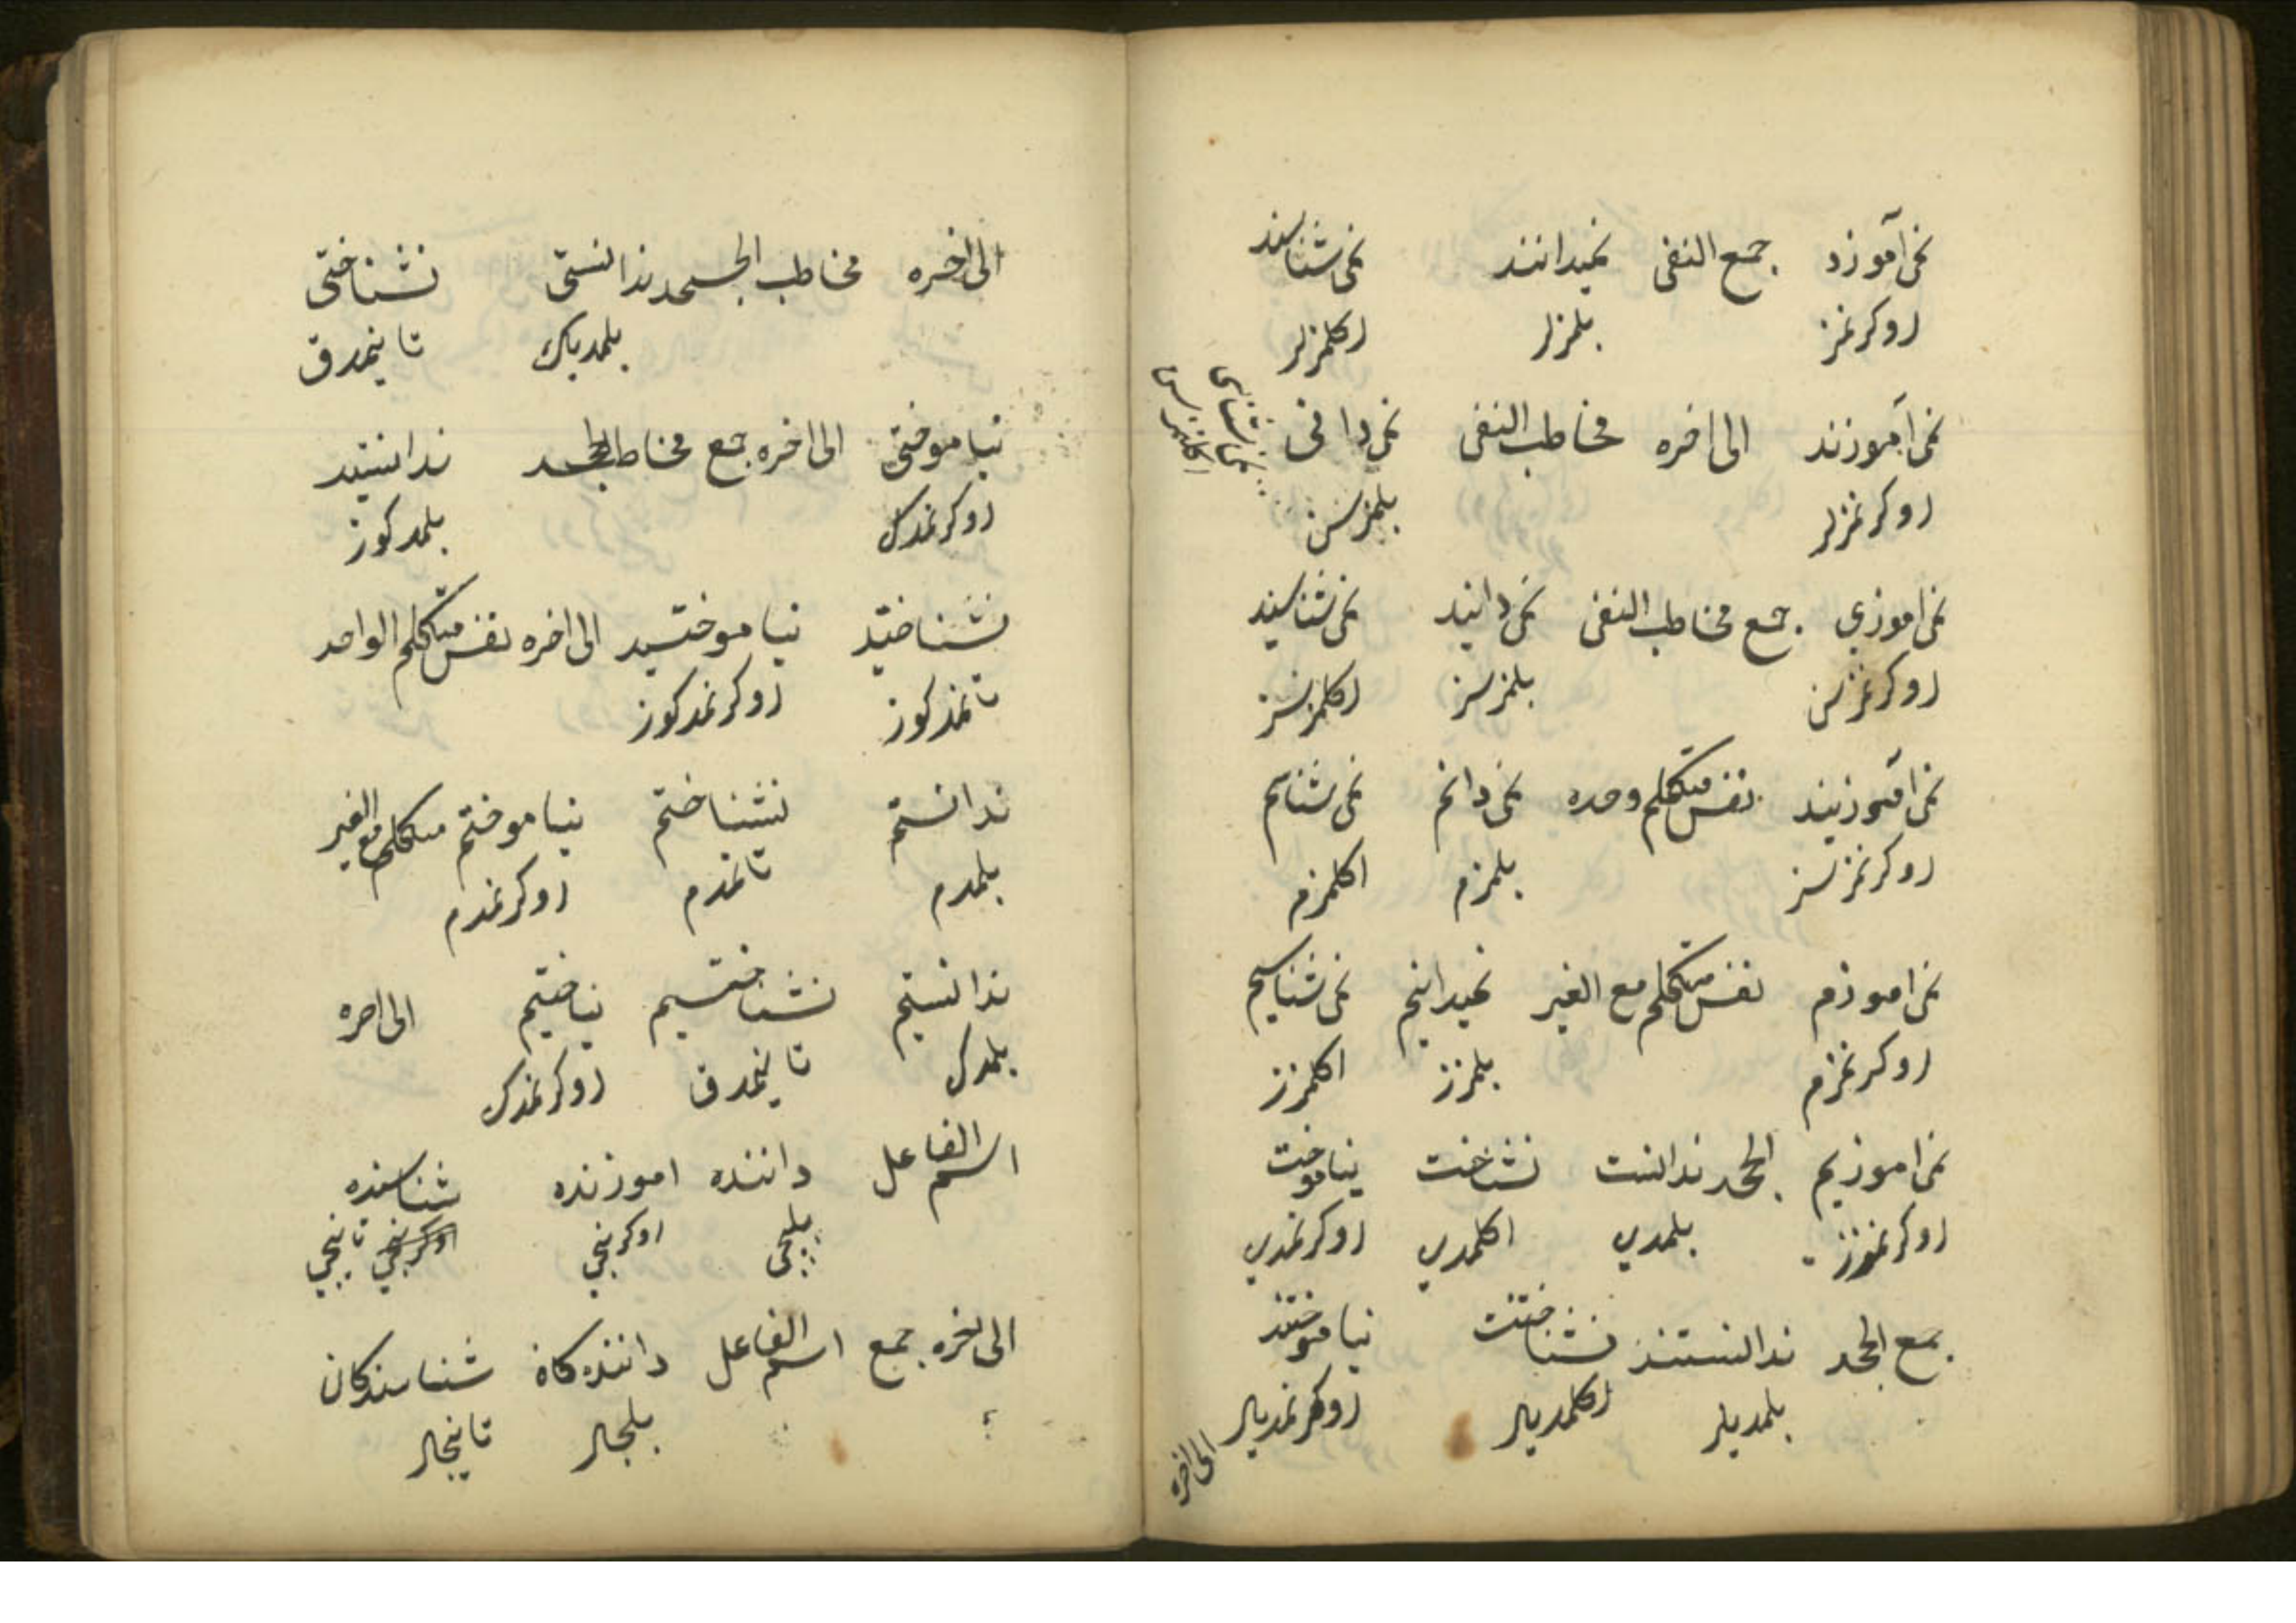 نمی‌آموزد جمع النفی نمیدانند نمی‌شناسند
اوکرنمز بلمزلر اکلمزلر
نمی‌آموزند الی اخره مخاطب النفی نمی‌دانی نمی‌شناسی
اوکرنمزلر بلمزسن
نمی‌اموزی جمع مخاطب النفی نمی‌دانید نمی‌شناسید
اوکرنمزسن بلمزسز اکلمزسز
نمی‌آموزیند نفس متکلم وحده نمی‌دانم نمی‌شناسم
اوکرنمزسز بلمزم اکلمزم
نمی‌اموزم نفس متکلم مع الغیر نمیدانیم نمی‌شناسیم
اوکرنمزم بلمزز اکلمزز
نمی‌اموزیم الجحد ندانست نشناخت نیاموخت
اوکرنمزز بلمدی اکلمدی اوکرنمدی
جمع الجحد ندانستند نشناختند نیاموختند
بلمدیلر اکلمدیلر اوکرنمدیلر
الی اخره
الی اخره مخاطب الجحد ندانستی نشناختی
بلمدیک تاینمدق
نیاموختی الی اخره جمع مخاطب الجحد ندانستید
اوکرنمدک بلمدکوز
نشناختید نیاموختید الی اخره نفس متکلم الواحد
تانمدکوز اوکرنمدکوز
ندانستم نشناختم نیاموختم متکلم مع الغیر
بلمدم تانمدم اوکرنمدم
ندانستیم نشناختیم نیاختیم الی اخره
بلمدک تاینمدق اوکرنمدک
اسم الفاعل داننده اموزنده شناسنده
بلیجی اوکرنیجی تانیجی
الی اخره جمع اسم الفاعل داننده‌کان شناسندکان
بلیجلر تاینجلر